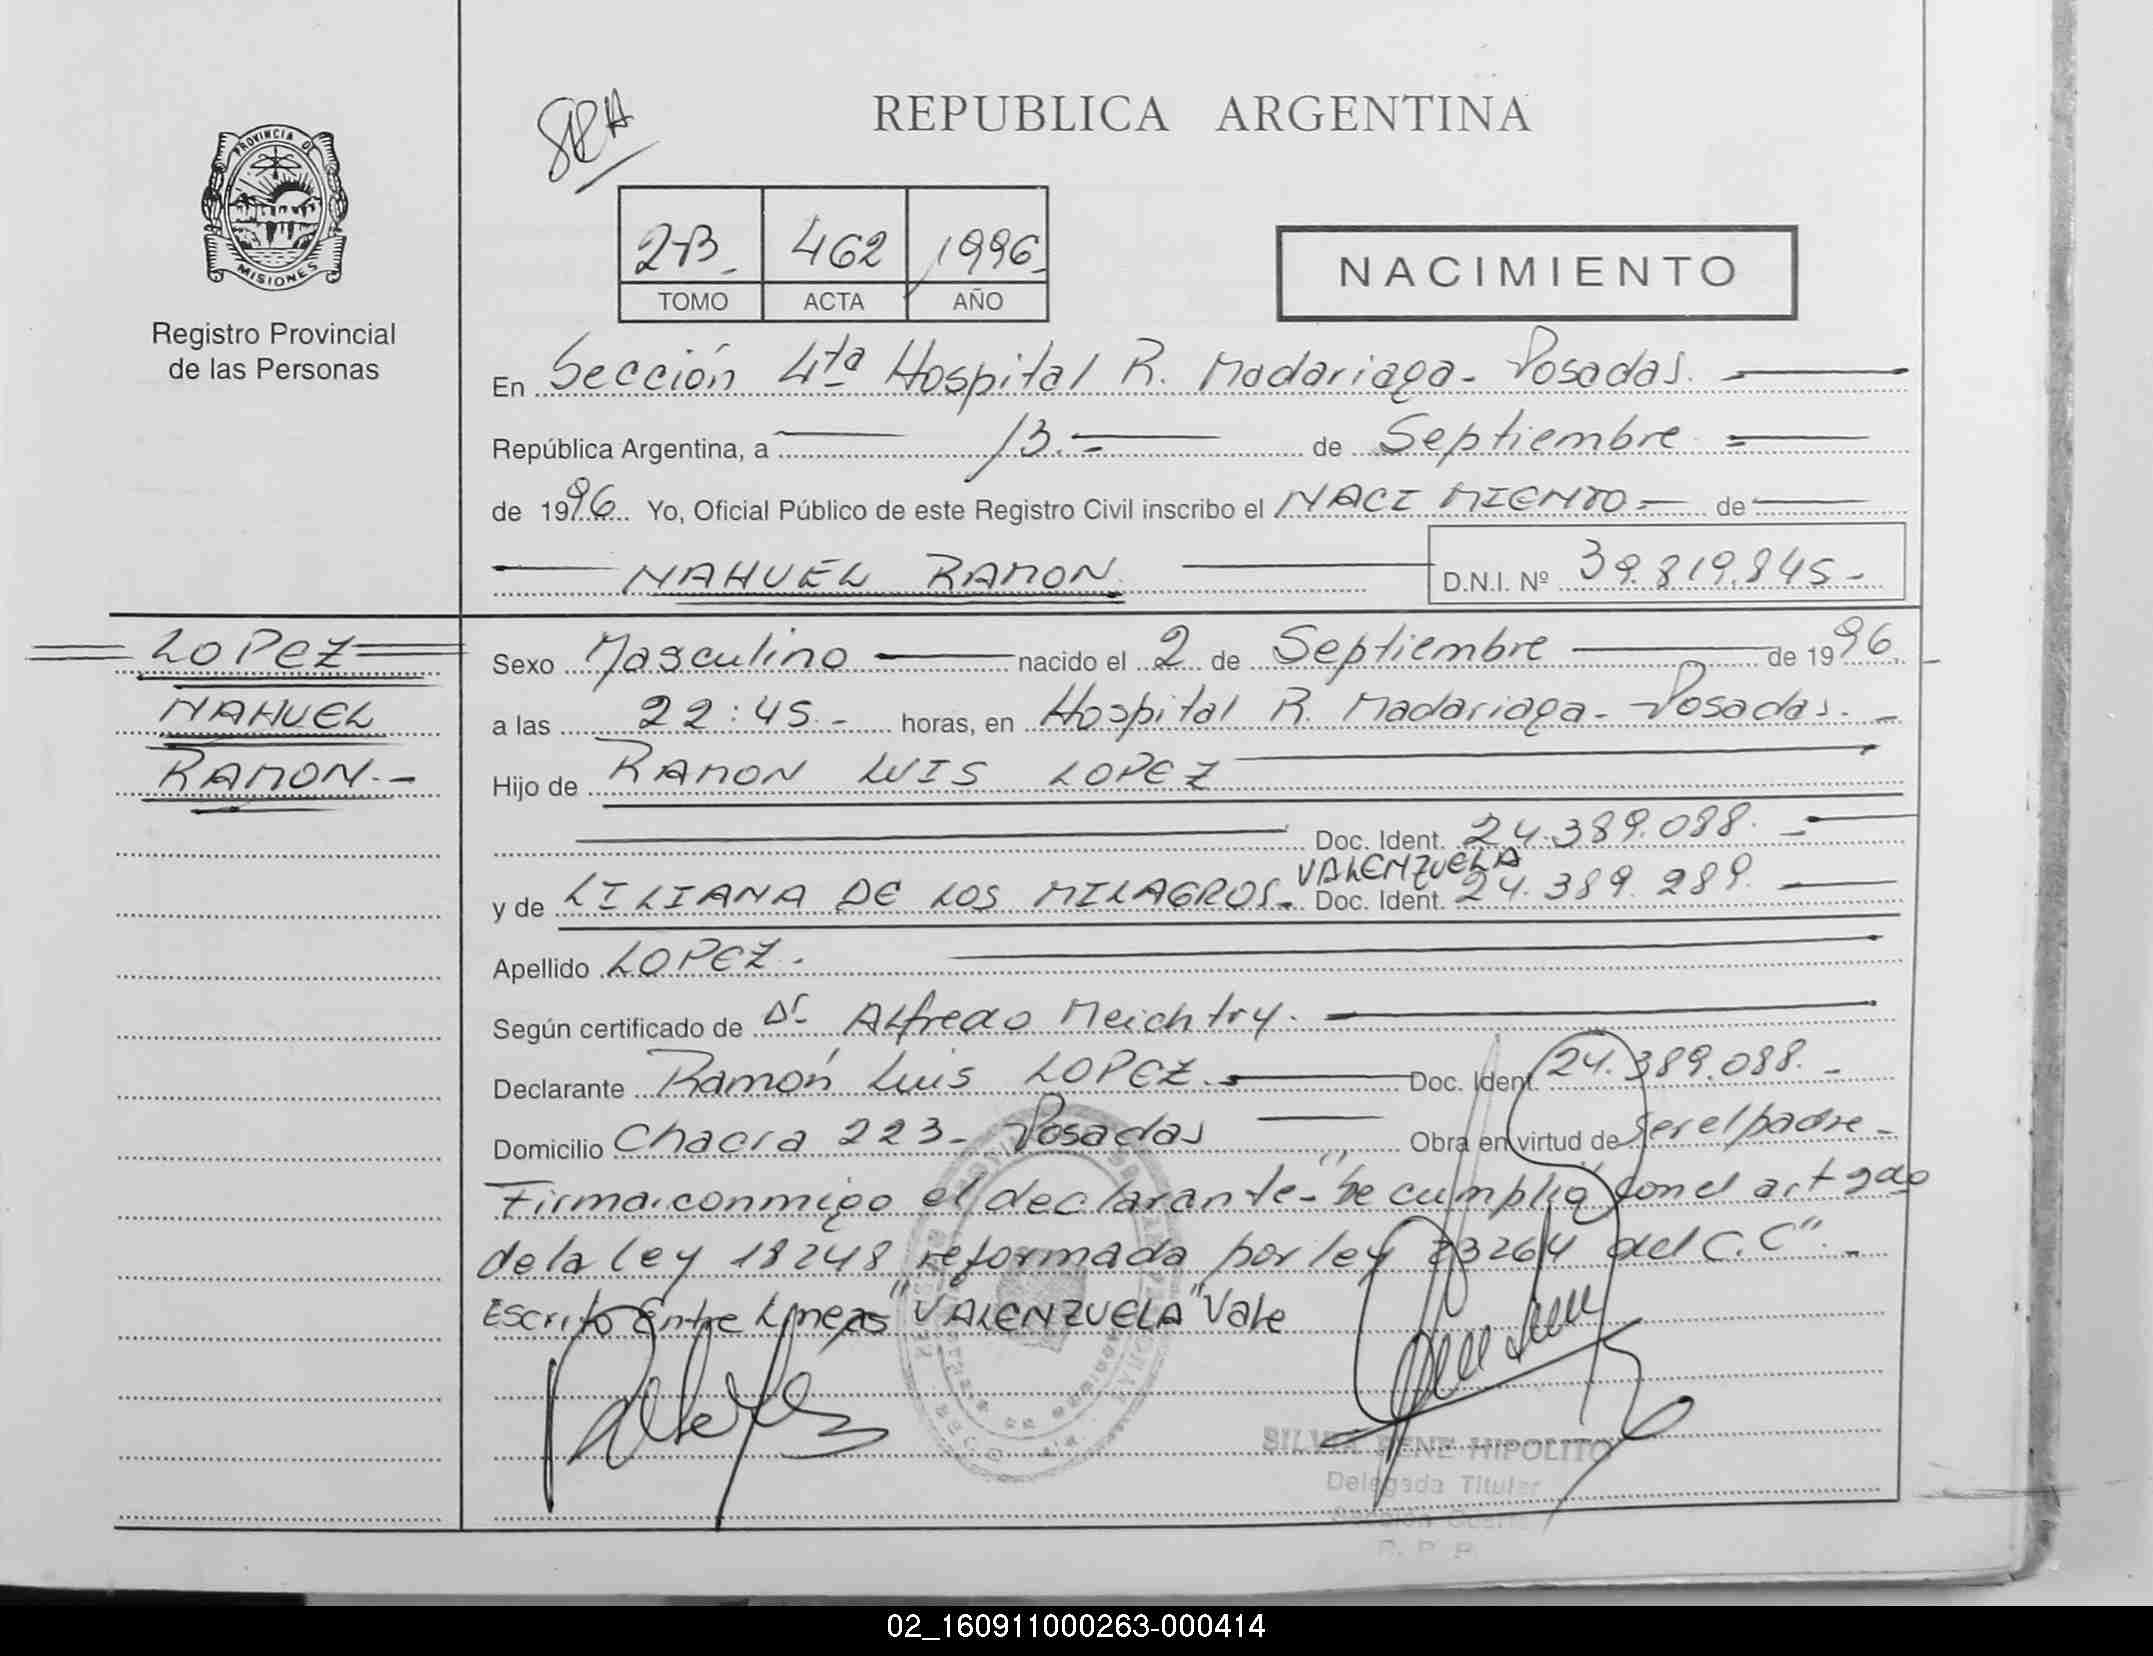 PROVINCIA D
MISIONES
Registro Provincial
de las Personas
REPUBLICA ARGENTINA
2-B.
462
1996.
TOMO
ACTA
AÑO
NACIMIENTO
En Sección 4ta Hospital R. Madariaga - Posadas.
República Argentina, a 13.- de Septiembre
de 1996. Yo, Oficial Público de este Registro Civil inscribo el NACIMIENTO - de
NAHUEL RAMON.
D.N.I. Nº 39.819.845-
LOPEZ
NAHUEL
RAMON.-
Sexo Masculino nacido el 2 de Septiembre de 1996.
a las 22:45.- horas, en Hospital R. Madariaga - Posadas. -
Hijo de RAMON LUIS LOPEZ
Doc. Ident. 24.389.088. -
VALENZUELA
y de LILIANA DE LOS MILAGROS. Doc. Ident. 24.389.289.
Apellido LOPEZ.
Según certificado de Dr. Alfredo Meichtry.
Declarante Ramón Luis LOPEZ. Doc. Ident. 24.389.088. -
Domicilio Chacra 223- Posadas Obra en virtud de ser el padre -
Firma conmigo el declarante - "Se cumplió con el art 2do
de la Ley 18248 reformada por ley 23264 del C.C". -
Escrito Entre Lineas "VALENZUELA" Vale
SILVIA RENE HIPOLITO
Delegada Titular
R. P. P.
02_160911000263-000414